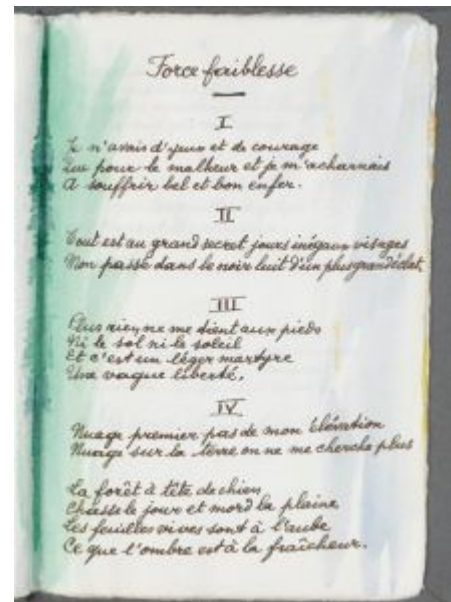 Force faiblesse
I
Je n'avais d'yeux et de courage
Que pour le malheur et je m'acharnais
A souffrir bel et bon enfer.
II
Tout est au grand secret jours inégaux visages
Mon passé dans le noir luit d'un plus grand éclat.
III
Plus rien ne me tient aux pieds
Ni le sol ni le soleil
Et c'est un léger martyre
Une vague liberté.
IV
Nuage premier pas de mon élévation
Nuage sur la terre on ne me cherche plus
La forêt à tête de chien
Chasse le jour et mord la plaine
Les feuilles vives sont à l'aube
Ce que l'ombre est à la fraîcheur.